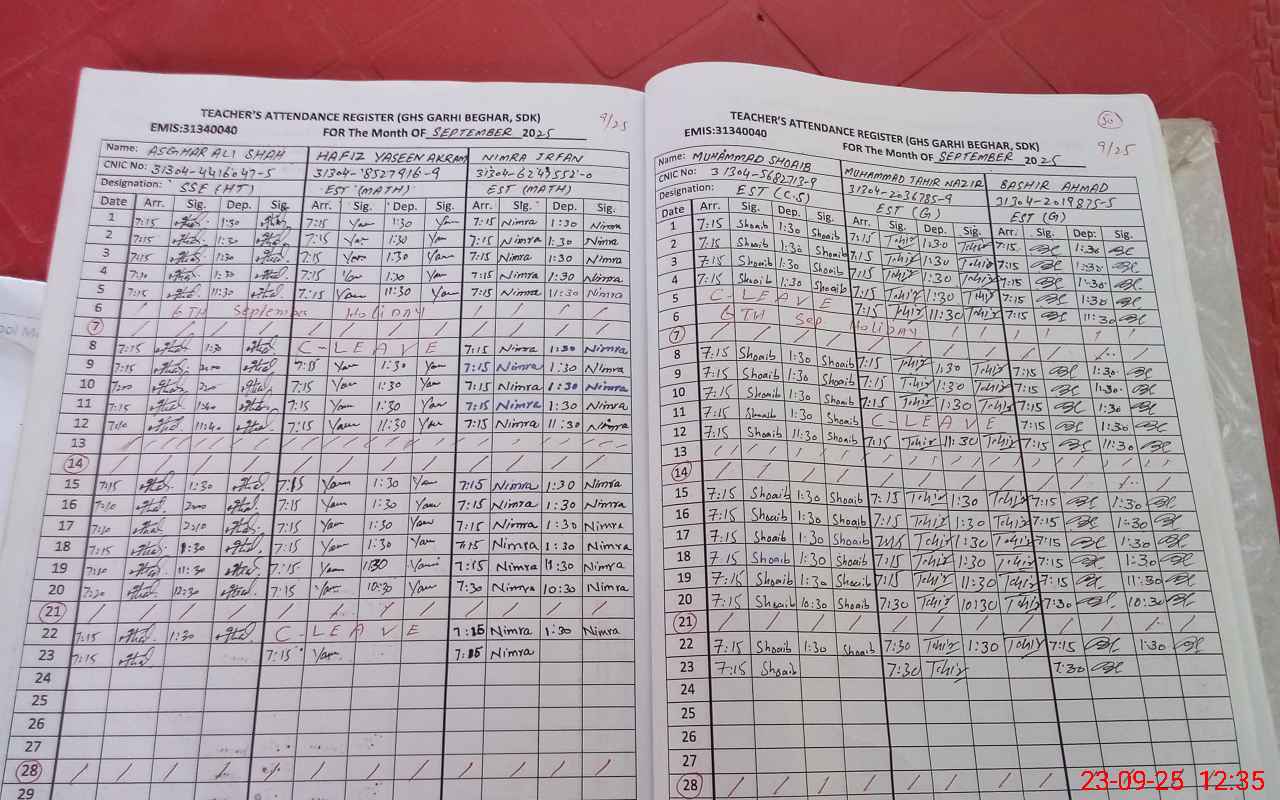 TEACHER'S ATTENDANCE REGISTER (GHS GARHI BEGHAR, SDK)
9/25
EMIS:31340040
FOR The Month OF SEPTEMBER 2025
Name: ASGHAR ALI SHAH HAFIZ YASEEN AKRAM NIMRA IRFAN
CNIC No: 31304-4416047-5 31304-8527916-9 31304-6249552-0
Designation: SSE (HT) EST (MATH) EST (MATH)
Date Arr. Sig. Dep. Sig. Arr. Sig. Dep. Sig. Arr. Sig. Dep. Sig.
1 7:15 1:30 7:15 Yam 1:30 Yam 7:15 Nimra 1:30 Nimra
2 7:15 1:30 7:15 Yam 1:30 Yam 7:15 Nimra 1:30 Nimra
3 7:15 1:30 7:15 Yam 1:30 Yam 7:15 Nimra 1:30 Nimra
4 1:30 7:15 Yam 1:30 Yam 7:15 Nimra 1:30 Nimra
5 7:15 11:30 7:15 Yam 11:30 Yam 7:15 Nimra 11:30 Nimra
6 6TH September Holiday
7
8 7:15 1:30 C-LEAVE 7:15 Nimra 1:30 Nimra
9 7:15 7:15 Yam 1:30 Yam 7:15 Nimra 1:30 Nimra
10 7:15 Yam 1:30 Yam 7:15 Nimra 1:30 Nimra
11 7:15 7:15 Yam 1:30 Yam 7:15 Nimra 1:30 Nimra
12 11:40 7:15 Yam 11:30 Yam 7:15 Nimra 11:30 Nimra
13
14
15 7:15 1:30 7:15 Yam 1:30 Yam 7:15 Nimra 1:30 Nimra
16 7:15 Yam 1:30 Yam 7:15 Nimra 1:30 Nimra
17 7:15 Yam 1:30 Yam 7:15 Nimra 1:30 Nimra
18 7:15 1:30 7:15 Yam 1:30 Yam 7:15 Nimra 1:30 Nimra
19 11:30 7:15 Yam 11:30 Yam 7:15 Nimra 11:30 Nimra
20 7:15 Yam 10:30 Yam 7:30 Nimra 10:30 Nimra
21
22 7:15 1:30 C-LEAVE 7:15 Nimra 1:30 Nimra
23 7:15 7:15 Yam 7:15 Nimra
24
25
26
27
28
29
50
TEACHER'S ATTENDANCE REGISTER (GHS GARHI BEGHAR, SDK)
9/25
EMIS:31340040
FOR The Month OF SEPTEMBER 2025
Name: MUHAMMAD SHOAIB MUHAMMAD TAHIR NAZIR BASHIR AHMAD
CNIC No: 31304-5682713-9 31304-2036785-9 31304-2019875-5
Designation: EST (C.S) EST (G) EST (G)
Date Arr. Sig. Dep. Sig. Arr. Sig. Dep. Sig. Arr. Sig. Dep. Sig.
1 7:15 Shoaib 1:30 Shoaib 7:15 Tahir 1:30 Tahir 7:15 1:30
2 7:15 Shoaib 1:30 Shoaib 7:15 Tahir 1:30 Tahir 7:15 1:30
3 7:15 Shoaib 1:30 Shoaib 7:15 Tahir 1:30 Tahir 7:15 1:30
4 7:15 Shoaib 1:30 Shoaib 7:15 Tahir 1:30 Tahir 7:15 1:30
5 C-LEAVE 7:15 Tahir 11:30 Tahir 7:15 11:30
6 6TH Sep Holiday
7
8 7:15 Shoaib 1:30 Shoaib 7:15 Tahir 1:30 Tahir 7:15 1:30
9 7:15 Shoaib 1:30 Shoaib 7:15 Tahir 1:30 Tahir 7:15 1:30
10 7:15 Shoaib 1:30 Shoaib 7:15 Tahir 1:30 Tahir 7:15 1:30
11 7:15 Shoaib 1:30 Shoaib C-LEAVE 7:15 1:30
12 7:15 Shoaib 11:30 Shoaib 7:15 Tahir 11:30 Tahir 7:15 11:30
13
14
15 7:15 Shoaib 1:30 Shoaib 7:15 Tahir 1:30 Tahir 7:15 1:30
16 7:15 Shoaib 1:30 Shoaib 7:15 Tahir 1:30 Tahir 7:15 1:30
17 7:15 Shoaib 1:30 Shoaib Tahir 1:30 Tahir 7:15 1:30
18 7:15 Shoaib 1:30 Shoaib 7:15 Tahir 1:30 Tahir 7:15 1:30
19 7:15 Shoaib 11:30 Shoaib 7:15 Tahir 11:30 Tahir 7:15 11:30
20 7:15 Shoaib 10:30 Shoaib 7:30 Tahir 10:30 Tahir 7:30 10:30
21
22 7:15 Shoaib 1:30 Shoaib 7:30 Tahir 1:30 Tahir 7:15 1:30
23 7:15 Shoaib 7:30 Tahir 7:30
24
25
26
27
28
23-09-25 12:35